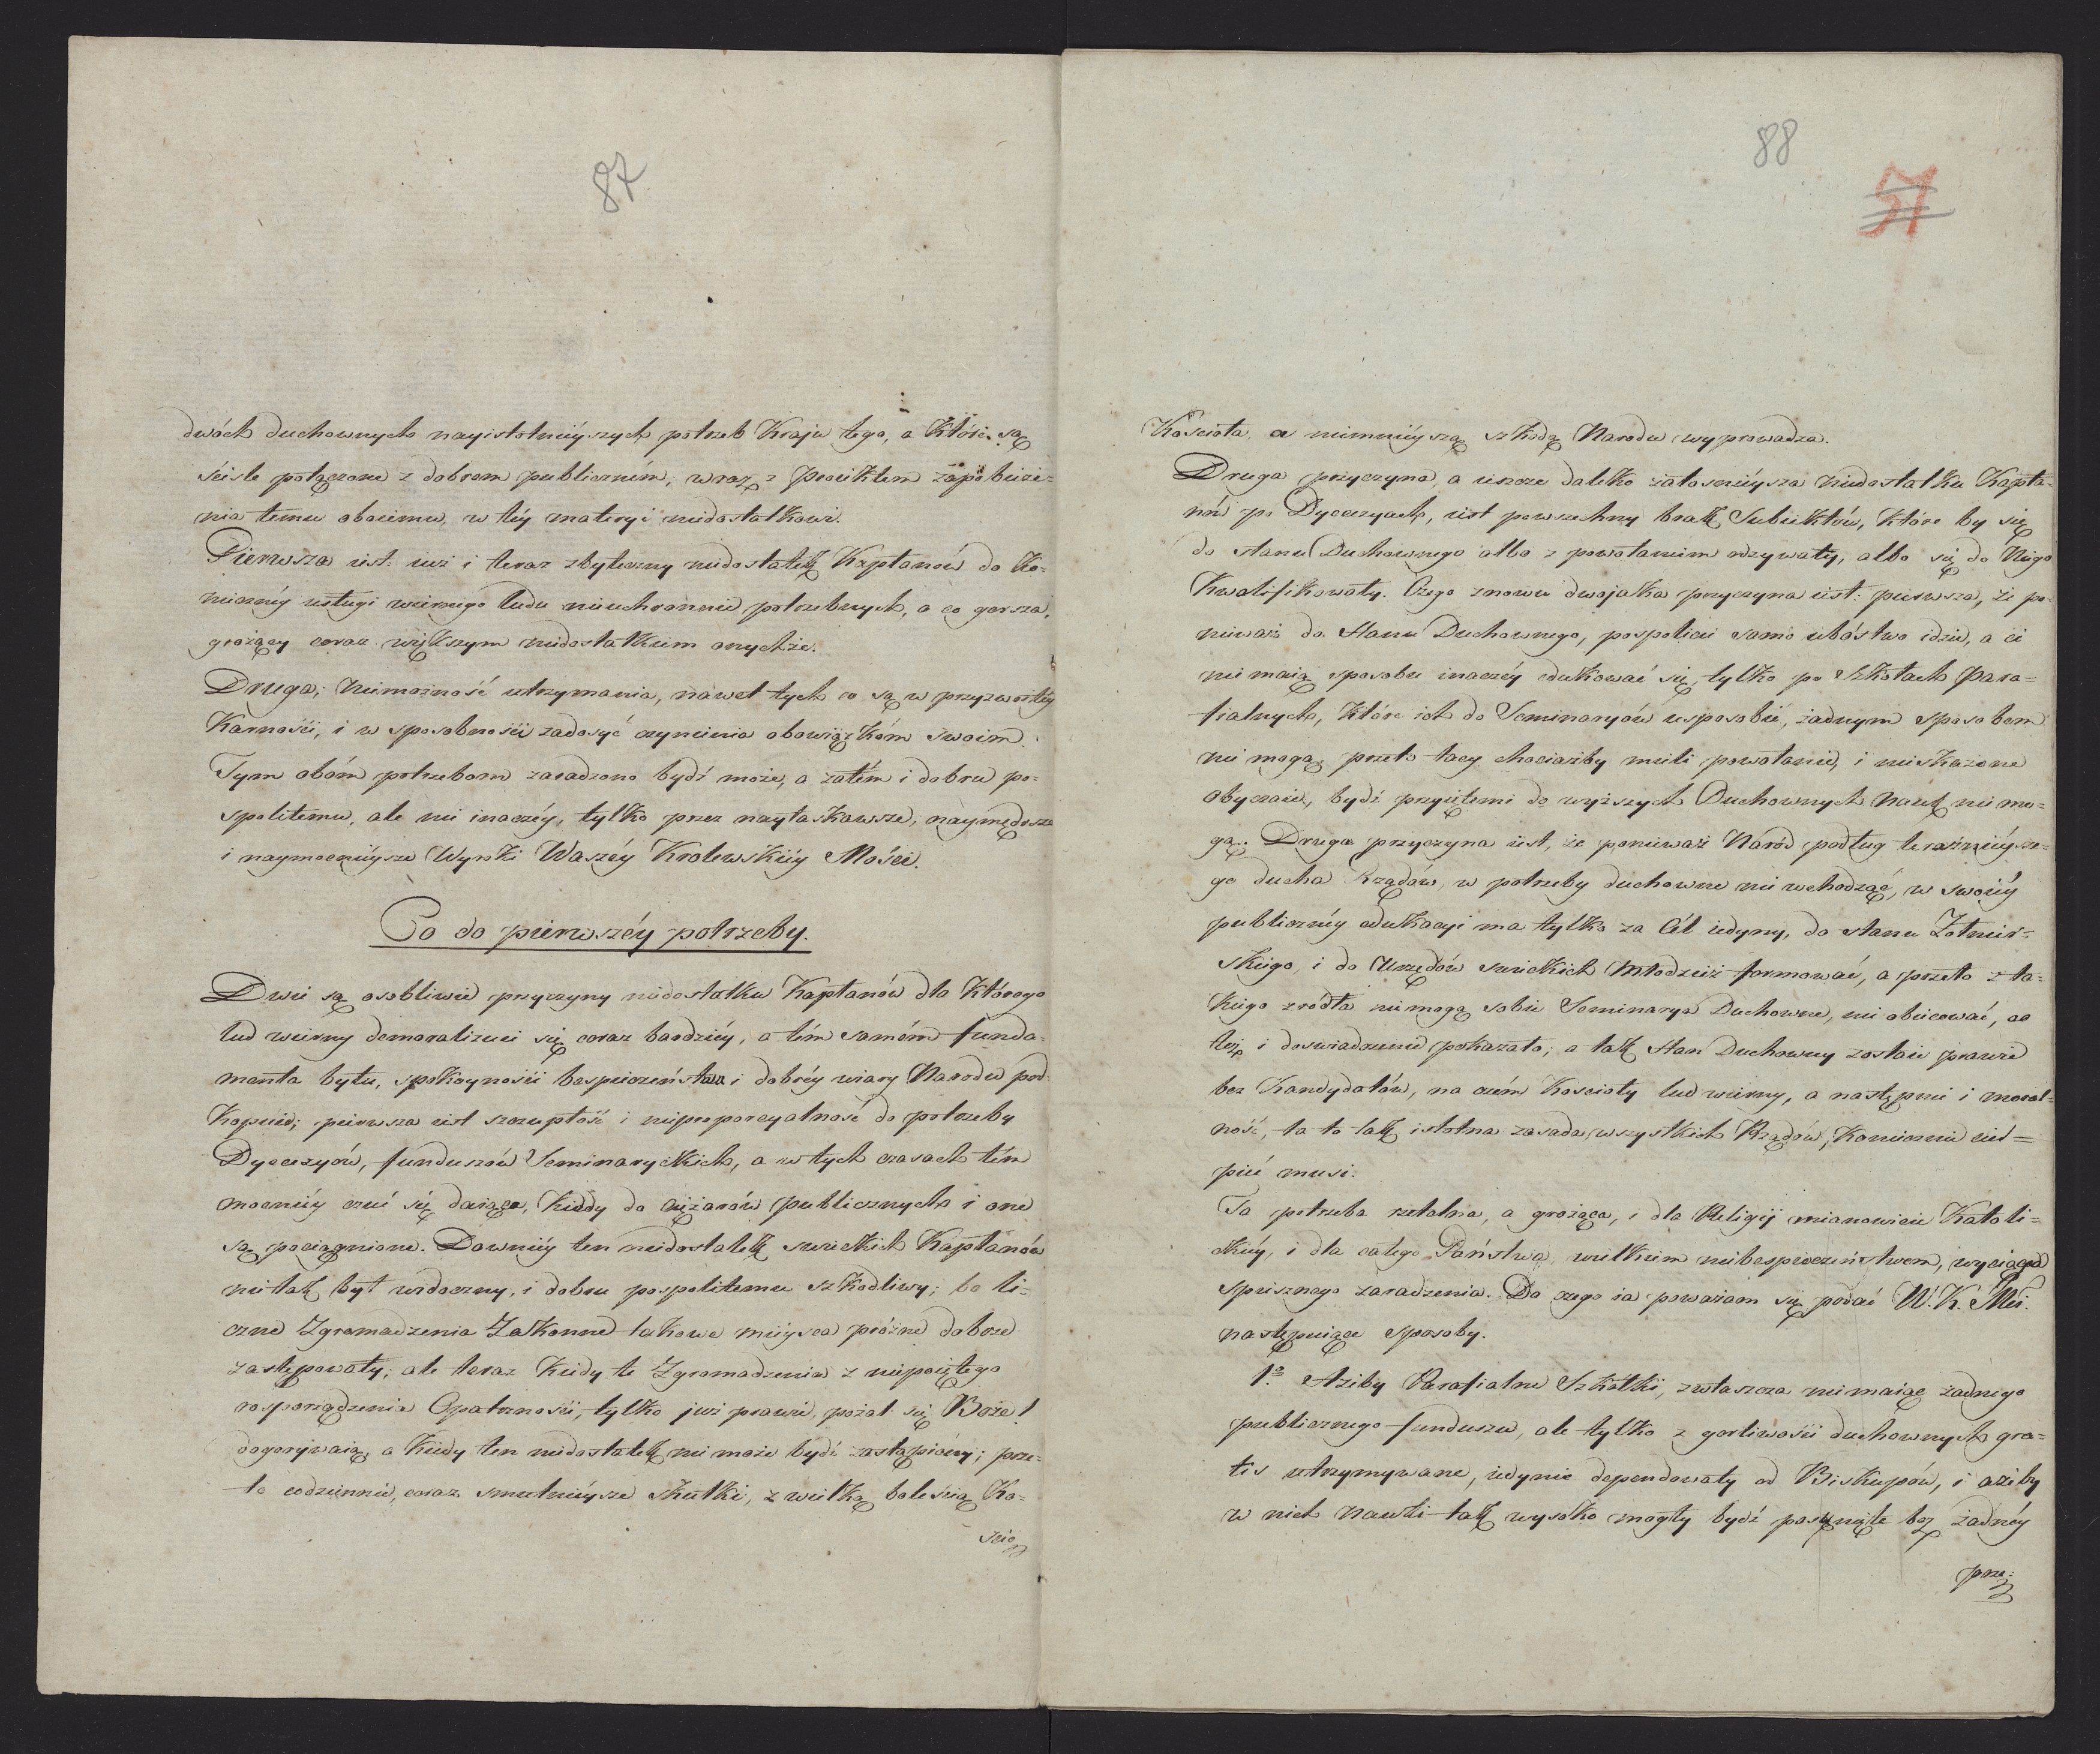 87
dwóch duchownych nayistotnieyszych potrzeb Kraju tego, a które są
ściśle połączone z dobrem publiczném; wraz z Proiektem zapobieże-
nia temu oboiemu, w téy materyi niedostatkowi.
Pierwsza iest: iuż i teraz zbyteczny niedostatek Kapłanów do ko-
nieczney usługi wiernego ludu nieuchronnie potrzebnych, a co gorsza,
grożący coraz większym niedostatkiem onychże.
Druga; Niemożność utrzymania, nawet tych co są, w przyzwoitéy
Karności, i w sposobności zadosyć czynienia obowiązkóm swoim.
Tym obóm potrzebom zaradzono bydź może, a zatém i dobru po-
spolitemu, ale nie inaczéy, tylko przez nayłaskawsze, naymędrsze
i naymocnieysze Wyroki Waszéy Królewskiéy Mości.
Co do pierwszéy potrzeby.
Dwie są osobliwie przyczyny niedostatku Kapłanów dla którego
lud wierny demoralizuie się coraz bardziéy, a tém samém funda-
menta bytu, spokoyności bespieczeństwa i dobréy wiary Narodu pod-
kopuie; pierwsza iest szczupłość i nieproporcyalność do potrzeby
Dyecezyów, funduszów Seminaryckich, a w tych czasach tém
mocniéy czuć się daiąca, kiedy do ciężarów publicznych i one
są pociągnione. Dawniéy ten niedostatek swieckich Kapłanów
nietak był widoczny, i dobru pospolitemu szkodliwy; bo li-
czne Zgromadzenia Zakonne takowe mieysca próżne dobrze
zastępowały; ale teraz kiedy te Zgromadzenia z niepoiętego
rosporządzenia Opatrzności, tylko już prawie, pożal się Boże!
dogorywaią, a kiedy ten niedostatek nie może bydź zastąpiony; prze-
to codziennie, coraz smutnieysze skutki, z wielką boleścią Ko-
scio
88
51
Kościoła, a niemnieyszą szkodą Narodu wyprowadza.
Druga przyczyna, a ieszcze daleko żałosnieysza niedostatku Kapła-
nów po Dyecezyach, iest powszechny brak Subiektów, które by się
do stanu Duchownego albo z powołaniem odzywały, albo się do Niego
Kwalifikowały. Czego znowu dwojaka przyczyna iest: pierwsza, że po-
nieważ do Stanu Duchownego, pospolicie samo ubóstwo idzie, a ci
nie maią sposobu inaczéy edukować się, tylko po Szkołach Para-
fialnych, które ich do Seminaryów usposobić, żadnym sposobem
nie mogą, przeto tacy chociażby mieli powołanie, i nieskażone
obyczaie, bydź przyiętemi do wyższych Duchownych Nauk nie mo-
gą. Druga przyczyna iest, że ponieważ Naród podług teraźnieysze-
go ducha Rządów, w potrzeby duchowne nie wchodząc, w swoiéy
publicznéy edukacyi ma tylko za Cél iedyny, do stanu Żołnier-
skiego, i do Urzędów swieckich Młodzież formować, a przeto z ta-
kiego zrodła nie mogą sobie Seminarya Duchowne, nic obiecować, co
też i doswiadczenie pokazało; a tak Stan Duchowny zostaie prawie
bez Kandydatów, na czém Kościoły lud wierny, a następnie i moral-
ność, ta to tak istotna zasada wszystkich Rządów, koniecznie cier=
pieć musi.
Ta potrzeba rzetelna, a grożąca, i dla Religij mianowicie Katoli=
ckiéy, i dla całego Państwa wielkiem niebespieczeństwem, wyciąga
spiesznego zaradzenia. Do czego ia poważam się podać W. K. Mci.
następuiące sposoby.
1.o Ażeby Parafialne Szkółki, zwłaszcza nie maiąc żadnego
publicznego funduszu, ale tylko z gorliwości duchownych gra=
tis utrzymywane, iedynie dependowały od Biskupów, i ażeby
w nich Nauki tak wysoko mogły bydź posunięte bez żadnéy
prze-